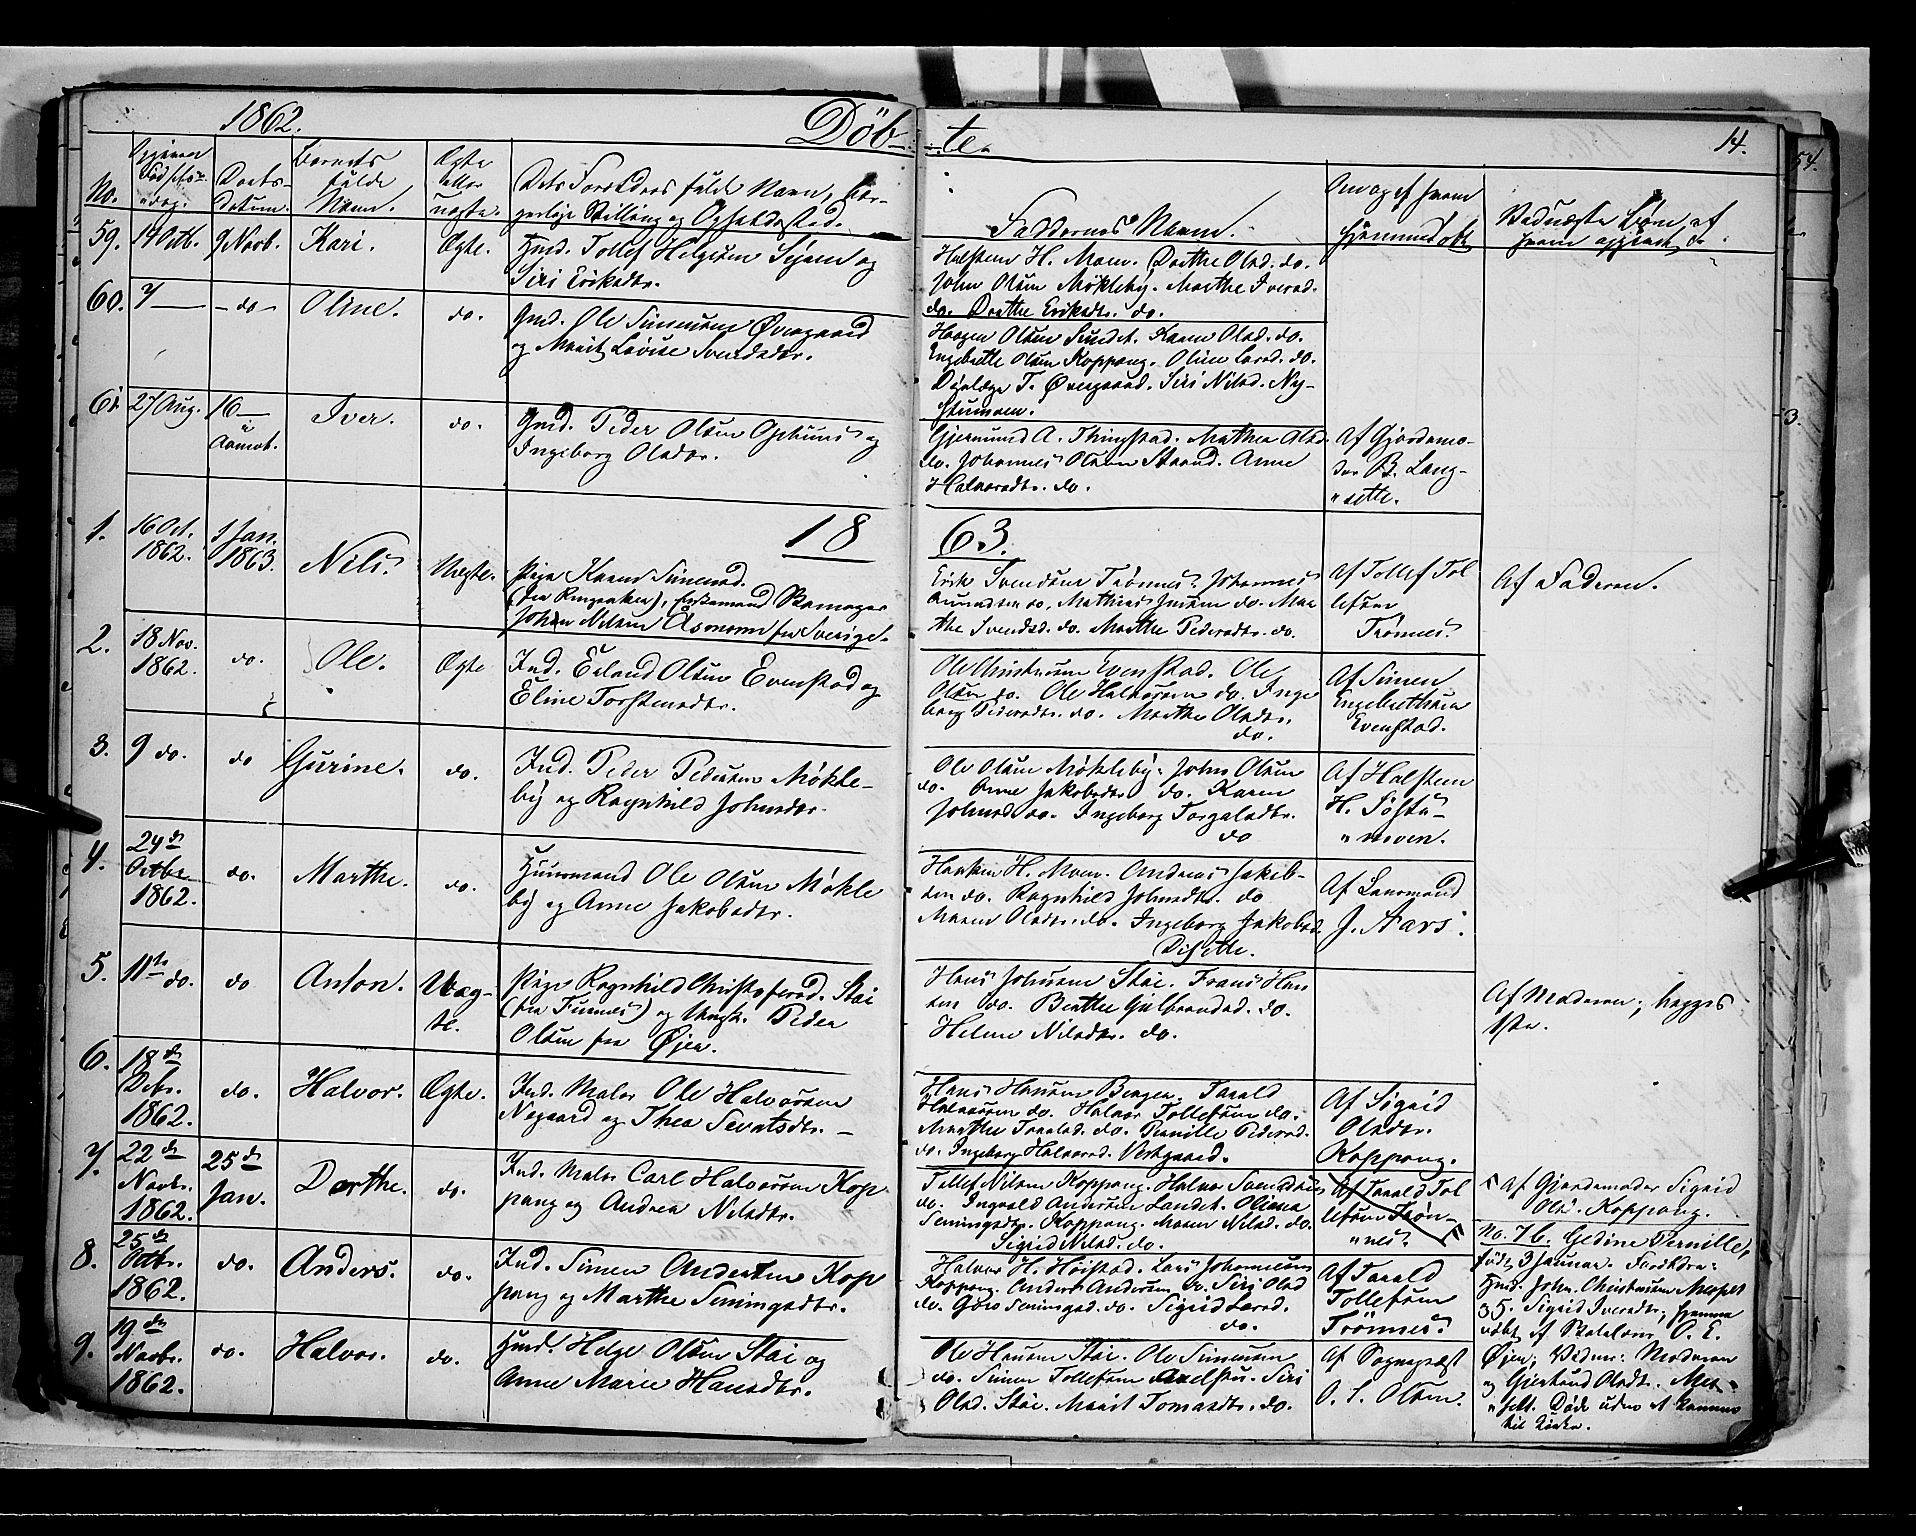 1862.
Döb-te.
14.
54.
No.
Daabs-datum.
Barnets fulde Navn.
Ægte eller uægte.
Dets Forældres fulde Navn, bor-
gerlige Stilling og Opholdssted.
Faddernes Navn.
hjemmedøbt
59. 14 Octb. 9 Novb. Kari. Ægte.
Hmd. Tollef Helgesen og
Siri Eriksdtr.
Halsten H. Moen. Dorthe Olsd. do.
John Olsen Møkleby. Marthe Iversd.
do. Dorthe Eriksdtr. do.
60. 7 — - do - Oline. do.
Gmd. Ole Simensen Øvergaard
og Marit Lovise Svendsdtr.
Haagen Olsen Sundet. Karen Olsd. do.
Engebrette Olsen Koppang. Oline Larsd. do.
T. Øvergaard. Siri Nilsd. Ny-
stumoen.
61. 27 Aug. 16 — i Aamot. Iver. do.
Gmd. Peder Olsen Ophuus og
Ingeborg Olsdtr.
Gjermund A. Thingstad. Mathea Olsd.
do. Johannes Olsen Strand. Anne
Halvorsdtr. do.
Af Gjordemo-
der B. Lang-
"sette.
18 63.
1. 16 Oct. 1862. 1 Jan. 1863. Nils. Uægte.
Pige Karen Simensd.
(fra Ringsaker), Skomager
Johan Nilsen Åsmoen fra Sverige.
Erik Svendsen Trønnes. Johannes
Amundsen do. Mathias Jensen do. Mar
the Svendsd. do. Marthe Pedersdtr. do.
Af Tollef Tol
lefsen
Trønnes.
Af Faderen.
2. 18 Nov. 1862. do. Ole. Ægte
Ind. Erland Olsen Evenstad og
Eline Torstensdtr.
Ole Christensen Evenstad. Ole
Olsen do. Ole Halvorsen do. Inge
borg Pedersdtr. do. Marthe Olsdtr.
do.
Af Simen
Engebrethsen
Evenstad.
3. 9 do. do Gurine. do.
Ind. Peder Pedersen Møkle-
by og Ragnhild Johnsdtr.
Ole Olsen Møkleby. John Olsen
do. Anne Jakobsdtr. do. Karen
Johnsd. do. Ingeborg Torgalsdtr.
do
Af Halsten
H. Søstu-
"moen.
4. 24de Octbr. 1862. do. Marthe. do.
Huusmand Ole Olsen Møkle
by og Anne Jakobsdtr.
Haaken H. Moen. Andreas Jakob-
sen do. Ragnhild Johnsdtr. do
Maren Olsdtr. do. Ingeborg Jakobsd.
Disette.
Af Lensmand
J. Aars.
5. 11te do. do Anton. Uæg-
te.
Pige Ragnhild Christofersd. Stai
(fra Furnes) og Ungk. Peder
Olsen fra Øjen.
Hans Johnsen Stai. Frans Han
sen do. Berthe Gulbrandsd. do.
Helene Nilsdtr. do.
Af Moderen; begges
1ste.
6. 18de Decbr. 1862. do. Halvor. Ægte.
Ind. Maler Ole Halvorsen
Negaard og Thea Sevatsdtr. —
Hans Hansen Berger. Tarald
Halvorsen do. Halvor Tollefsen do.
Marthe Taralsd. do. Pernille Pedersd.
do. Ingeborg Halvorsd. Vestgaard.
Af Sigrid
Olsdtr.
Koppang.
7. 22de Novbr. 1862. 25de Jan. Dorthe. do.
Ind. Maler Carl Halvorsen Kop
pang og Andrea Nilsdtr.
Tollef Nilsen Koppang. Halvor Svendsen
do. Ingvald Andersen Landet. Oliana
Semmingsdtr. Koppang. Maren Nilsd. do.
Sigrid Nilsd. do.
Af Tarald Tol
lefsen Trøn-
"nes.
Af Gjordemoder Sigrid
Olsd. Koppang.
8. 25de Octbr. 1862. do. Anders. do.
Ind. Simen Andersen Kop
pang og Marthe Semmingsdtr.
Halvor H. Høistad. Lars Johannesen
Koppang. Anders Andersen do. Siri Olsd
do. Goro Semingsd. do. Sigrid Larsd.
do.
Af Tarald
Tollefsen
Trønnes.
No. 76. Gedine Pernille,
født 3 Januar. Forældre:
Hmd. John Christensen Messelt
35. Sigrid Iversdtr; hjemme
døbt af Skolelærer O. E.
Øjen; Vidner: Moderen
og Gjertrud Olsdt. Mes-
"selt. Døde uden at komme
til Kirke.
9. 19de Novbr. 1862. do. Halvor. do.
Hmd. Helge Olsen Stai og
Anne Marie Hansdtr.
Ole Hansen Stai. Ole Simensen
do. Simen Tollefsen Siri
Olsd. Stai. Marit Tomasdtr. do.
Af Sognepræst
O. S. Olsen.